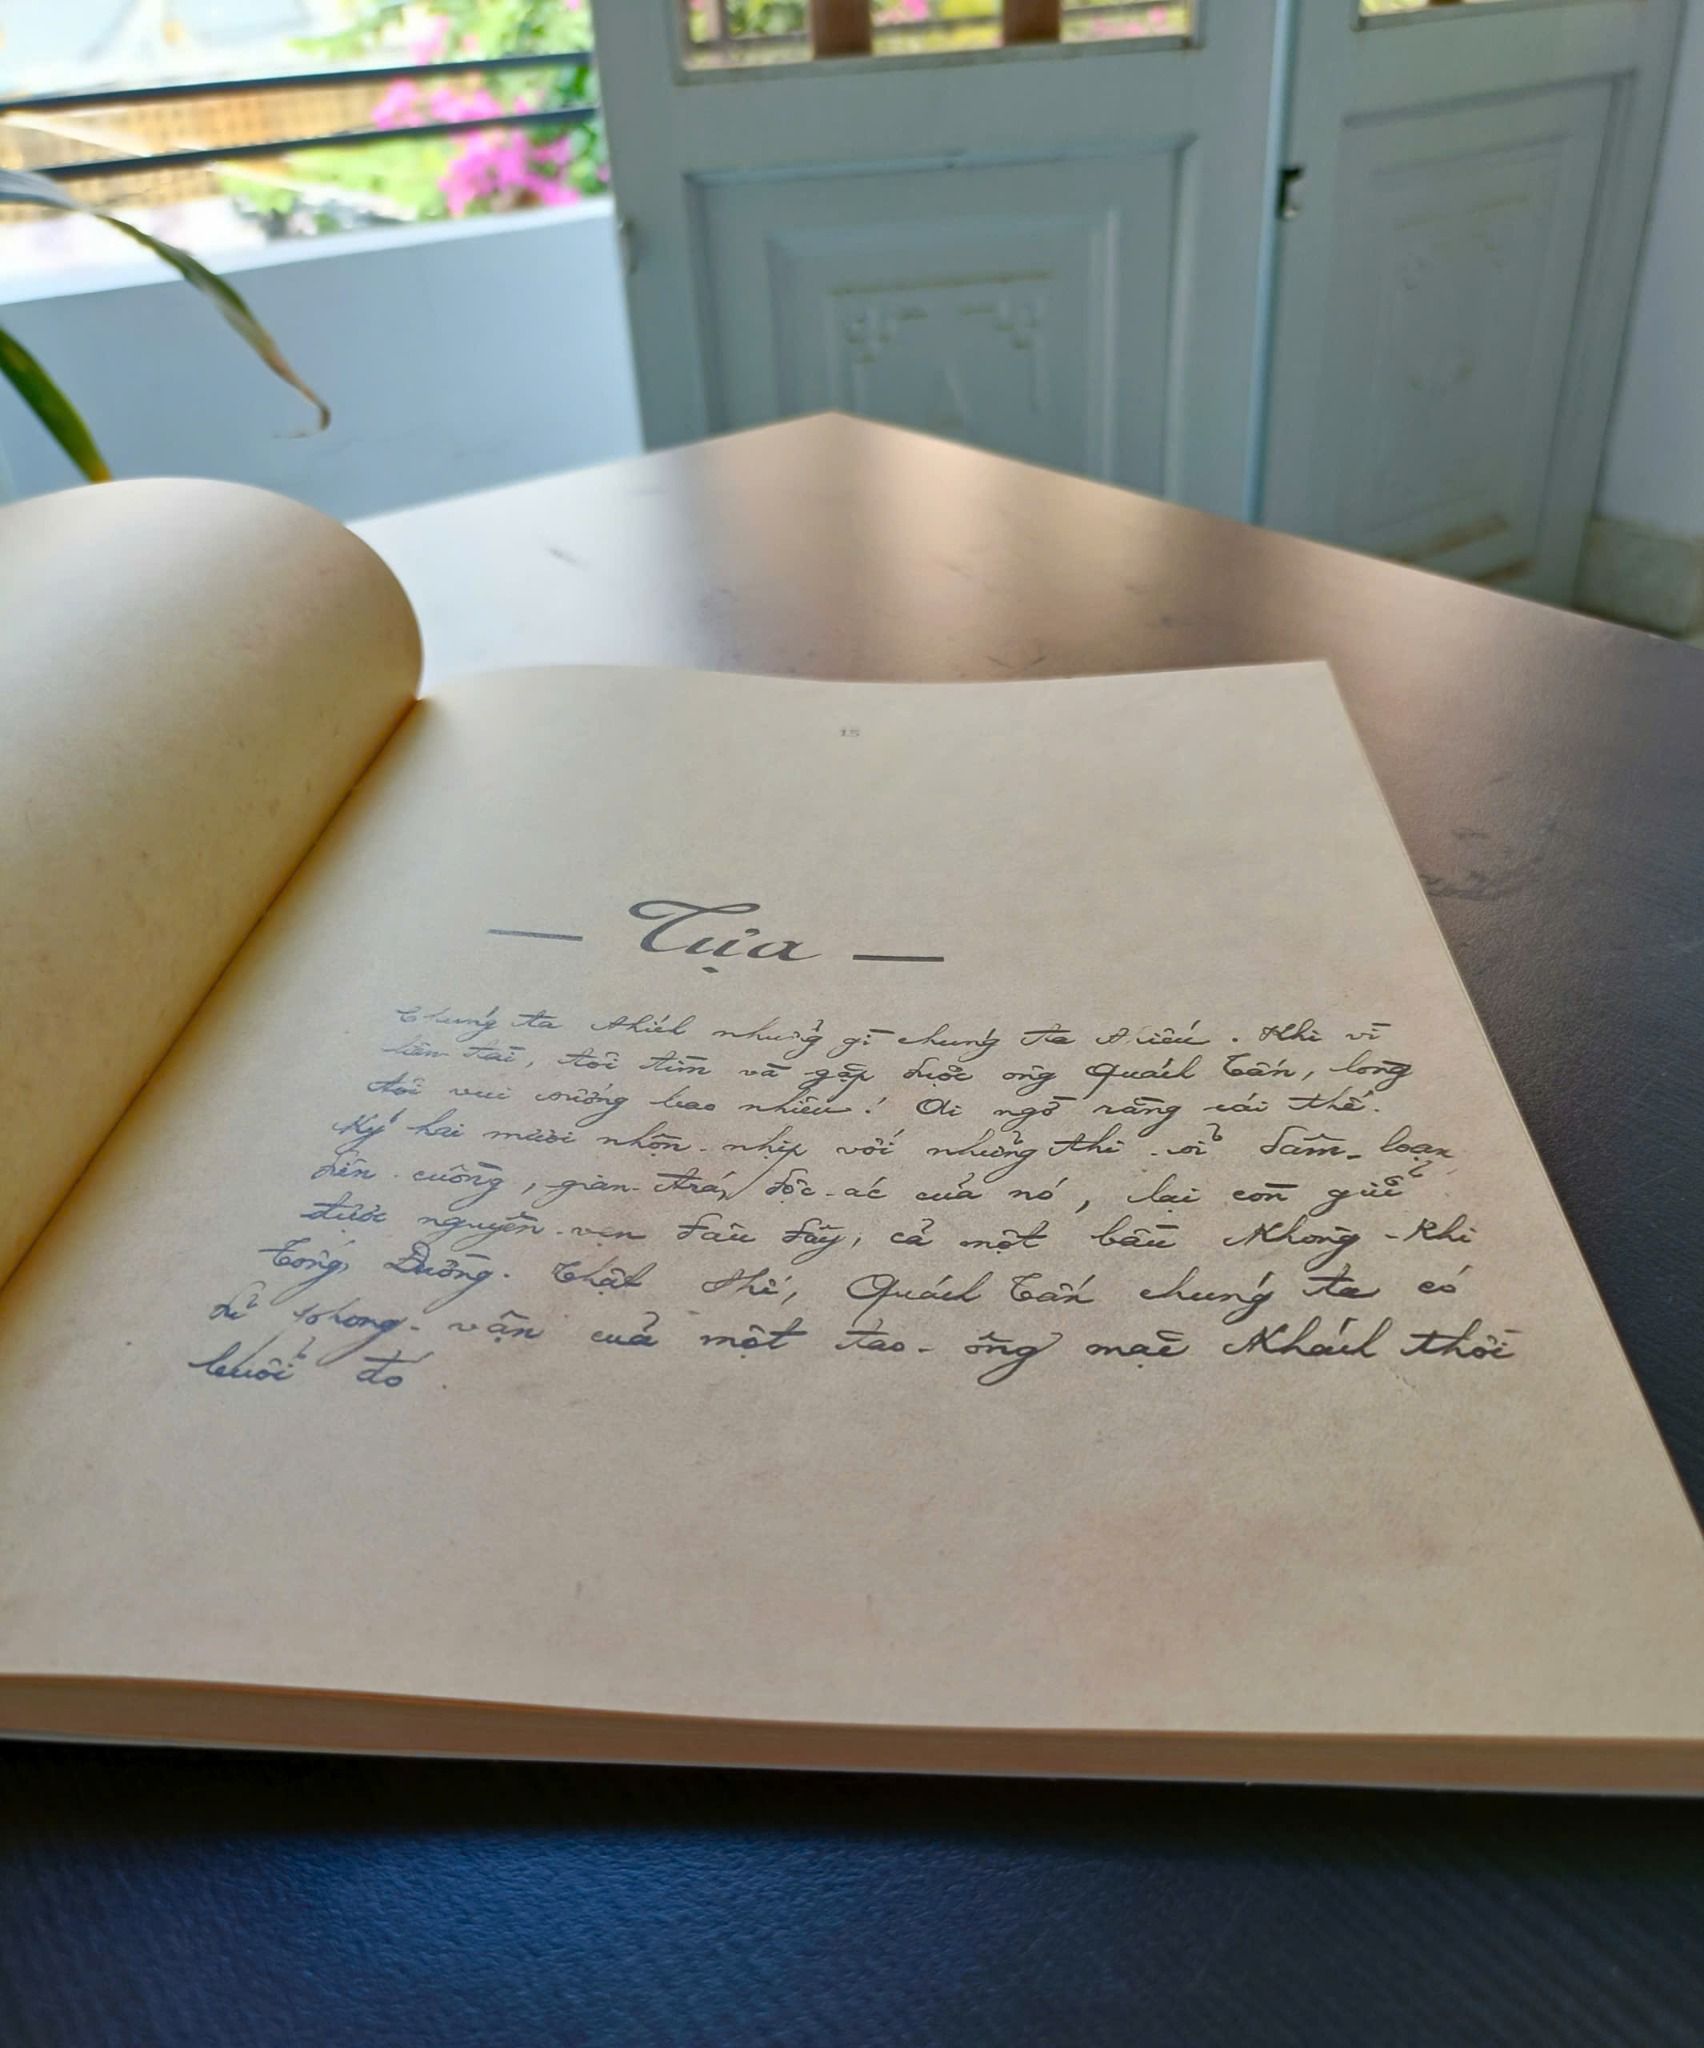 15
— Tựa —
Chúng ta thiếu những gì chúng ta thiếu. Khi vì
tôi tìm và gặp được ông Quách Tấn, lòng
tôi vui sướng bao nhiêu! Ai ngờ rằng cái thế
kỷ hai mươi nhộn-nhịp với những thi sĩ dâm-loạn
điên-cuồng, gian-trá, độc-ác của nó, lại còn giữ
được nguyên-vẹn đâu đây, cả một bầu không-khí
Tống, Đường. Thật thế, Quách Tấn chúng ta có
đủ phong-vận của một tao-ông mặc khách thời
buổi đó.